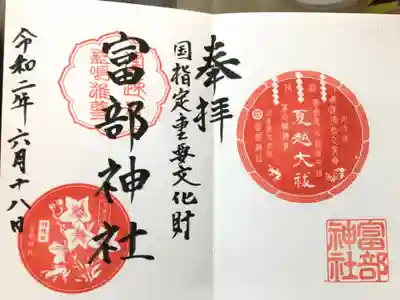 奉拝
夏越大祓
富部
神社
国指定重要文化財
富部神社
令和二年六月十八日